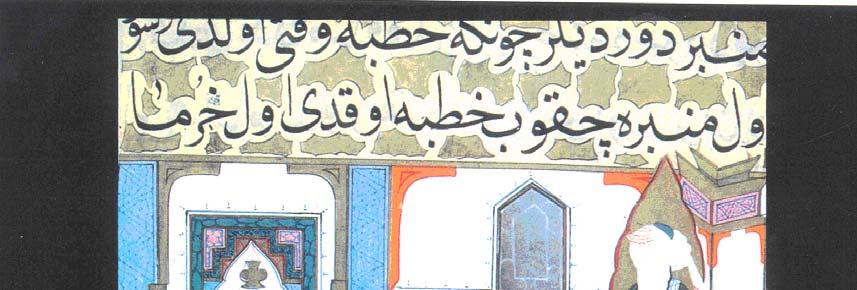 منبر دور ديلر چونكه خطبه وقتى اولدى رسو
ول منبره چقوب خطبه اوقدى اول خرما